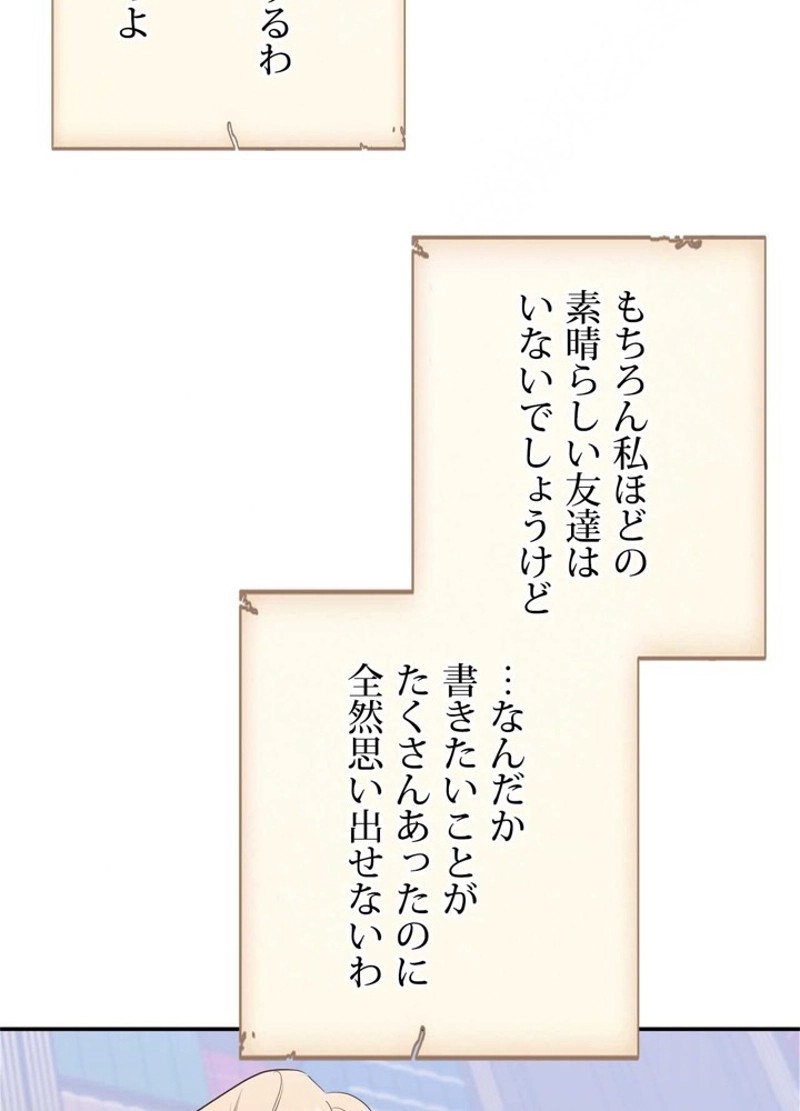 るわ
よ
もちろん私ほどの
素晴らしい友達は
いないでしょうけど
…なんだか
書きたいことが
たくさんあったのに
全然思い出せないわ